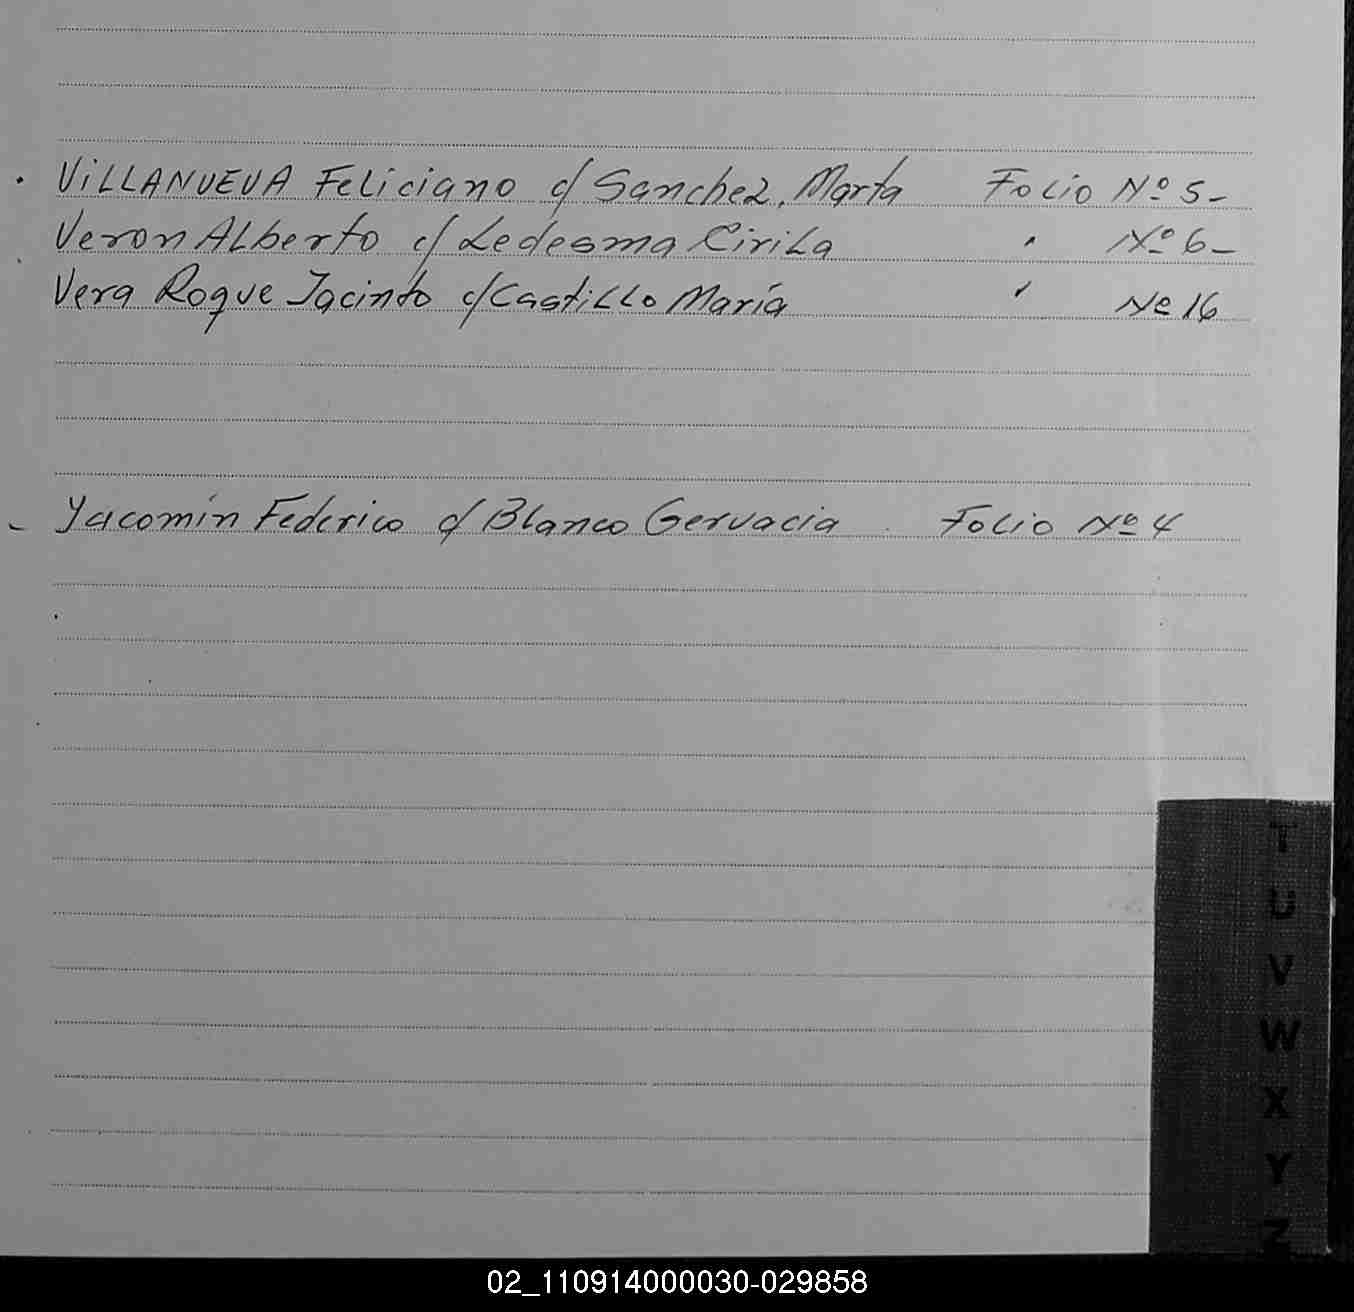 VILLANUEVA Feliciano c/ Sanchez, Marta Folio Nº 5-
Veron Alberto c/ Ledesma Cirila " Nº 6-
Vera Roque Jacinto c/ Castillo María " Nº 16
- Yacomin Federico c/ Blanco Gervacia. Folio Nº 4
T
U
V
W
X
Y
Z
02_110914000030-029858